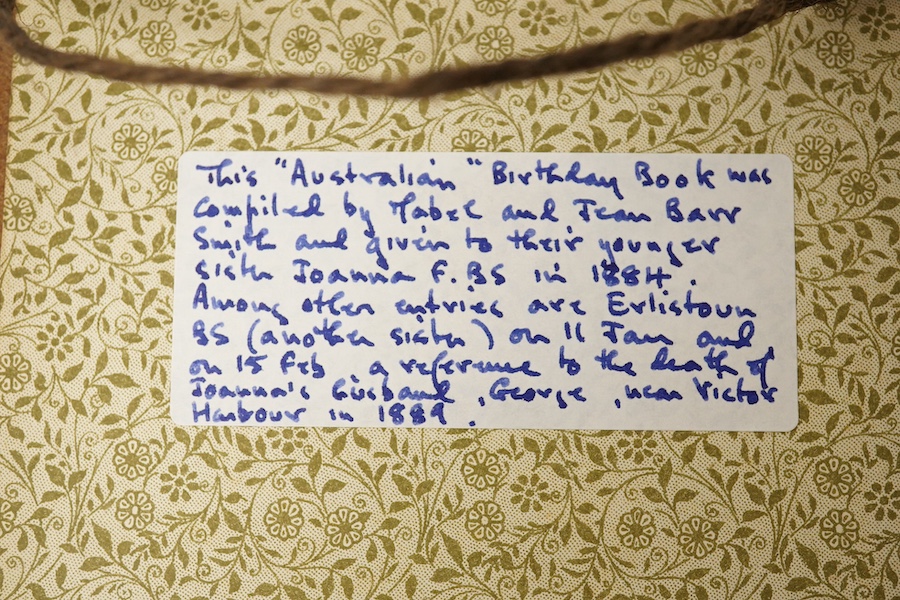 This "Australian" Birthday Book was
compiled by Mabel and Jean Barr
Smith and given to their younger
sister Joanna F. BS in 1884.
Among other entries are Erlistoun
BS (another sister) on 11 Jan and
on 15 Feb a reference to the death of
Joanna's husband, George, near Victor
Harbour in 1889.